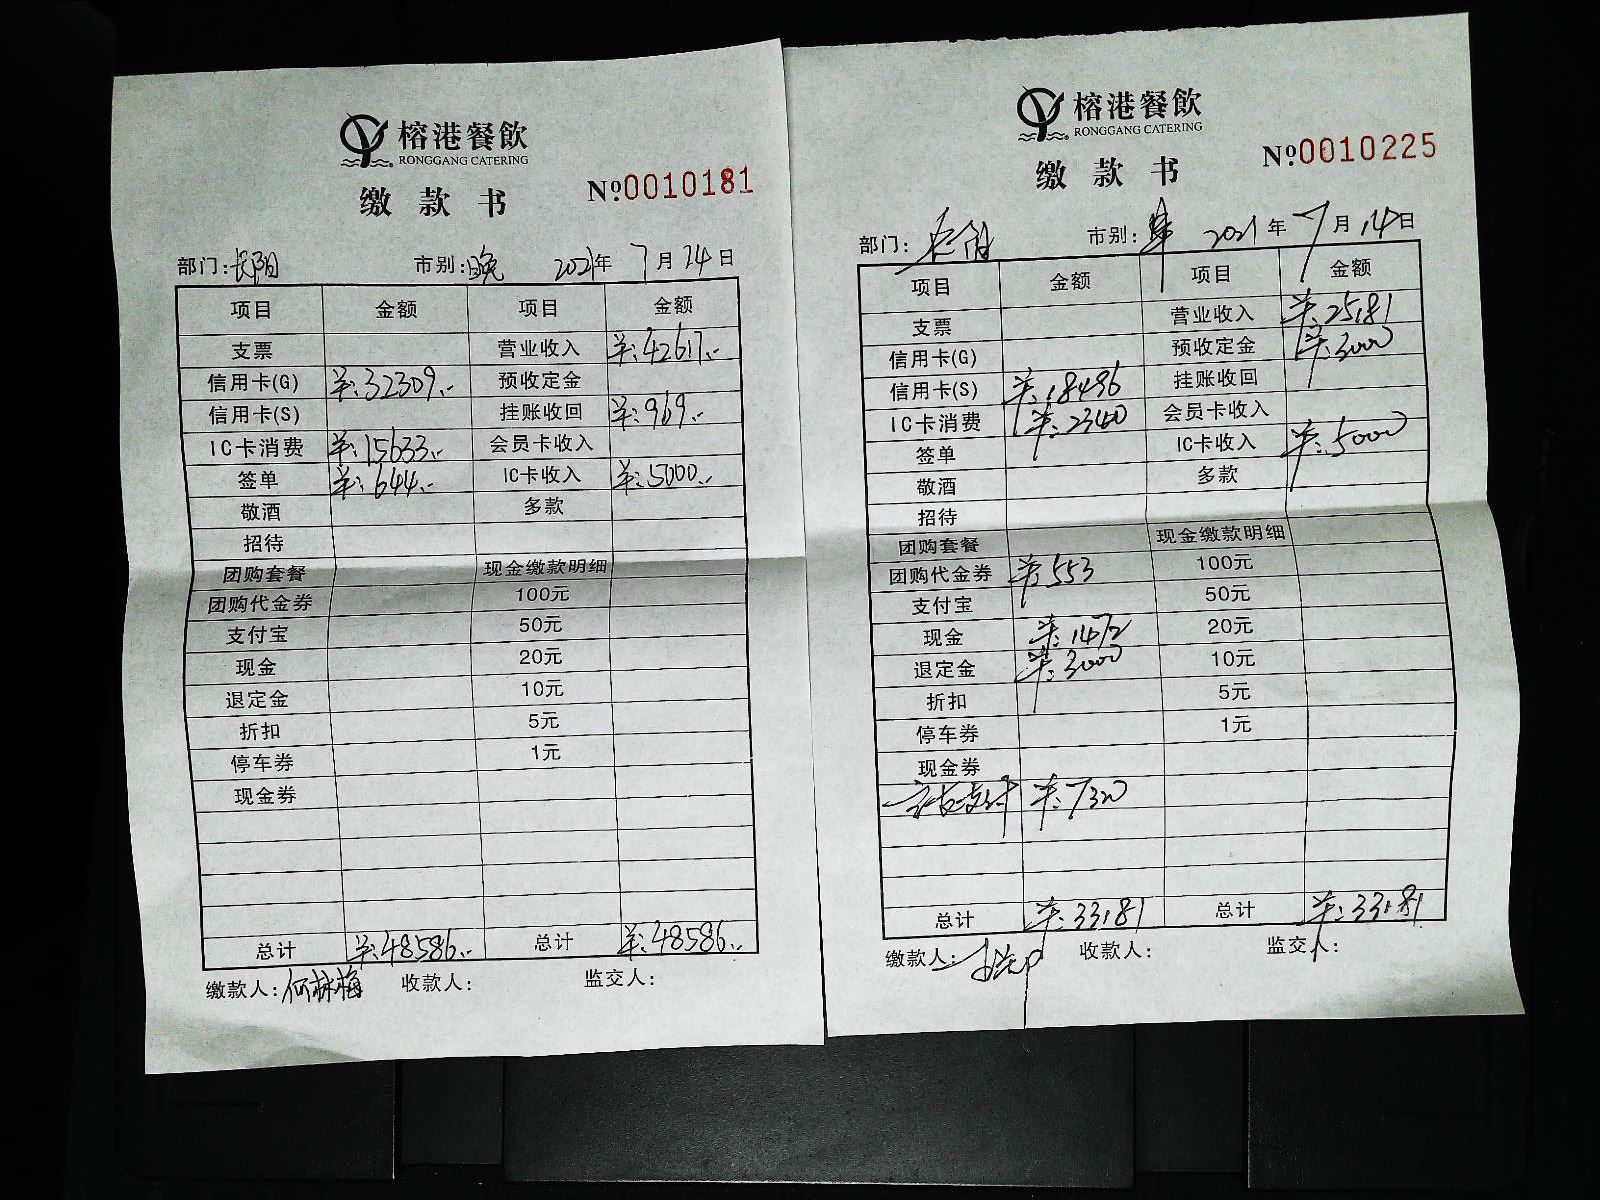 榕港餐飲
RONGGANG CATERING
缴款书
№.0010181
部门:长阳 市别:晚 2021年 7月 24日
项目 金额 项目 金额
支票 营业收入 ¥:42617.-
信用卡(G) ¥:32309.- 预收定金
信用卡(S) 挂账收回 ¥:969.-
IC卡消费 ¥:15633.- 会员卡收入
签单 ¥:644.- IC卡收入 ¥:5000.-
敬酒 多款
招待
团购套餐 现金缴款明细
团购代金券 100元
支付宝 50元
现金 20元
退定金 10元
折扣 5元
停车券 1元
现金券
总计 ¥:48586.- 总计 ¥:48586.-
缴款人:何林梅 收款人: 监交人:
榕港餐飲
RONGGANG CATERING
缴款书
№.0010225
部门: 市别: 2021年 7月 14日
项目 金额 项目 金额
支票 营业收入 ¥:25181
信用卡(G) 预收定金 ¥:3000
信用卡(S) ¥:18496 挂账收回
IC卡消费 ¥:2340 会员卡收入
签单 IC卡收入 ¥:5000
敬酒 多款
招待
团购套餐 现金缴款明细
团购代金券 ¥:553 100元
支付宝 50元
现金 ¥:1472 20元
退定金 ¥:3000 10元
折扣 5元
停车券 1元
现金券
支付 ¥:7320
总计 ¥:33181 总计 ¥:33181
缴款人: 收款人: 监交人: